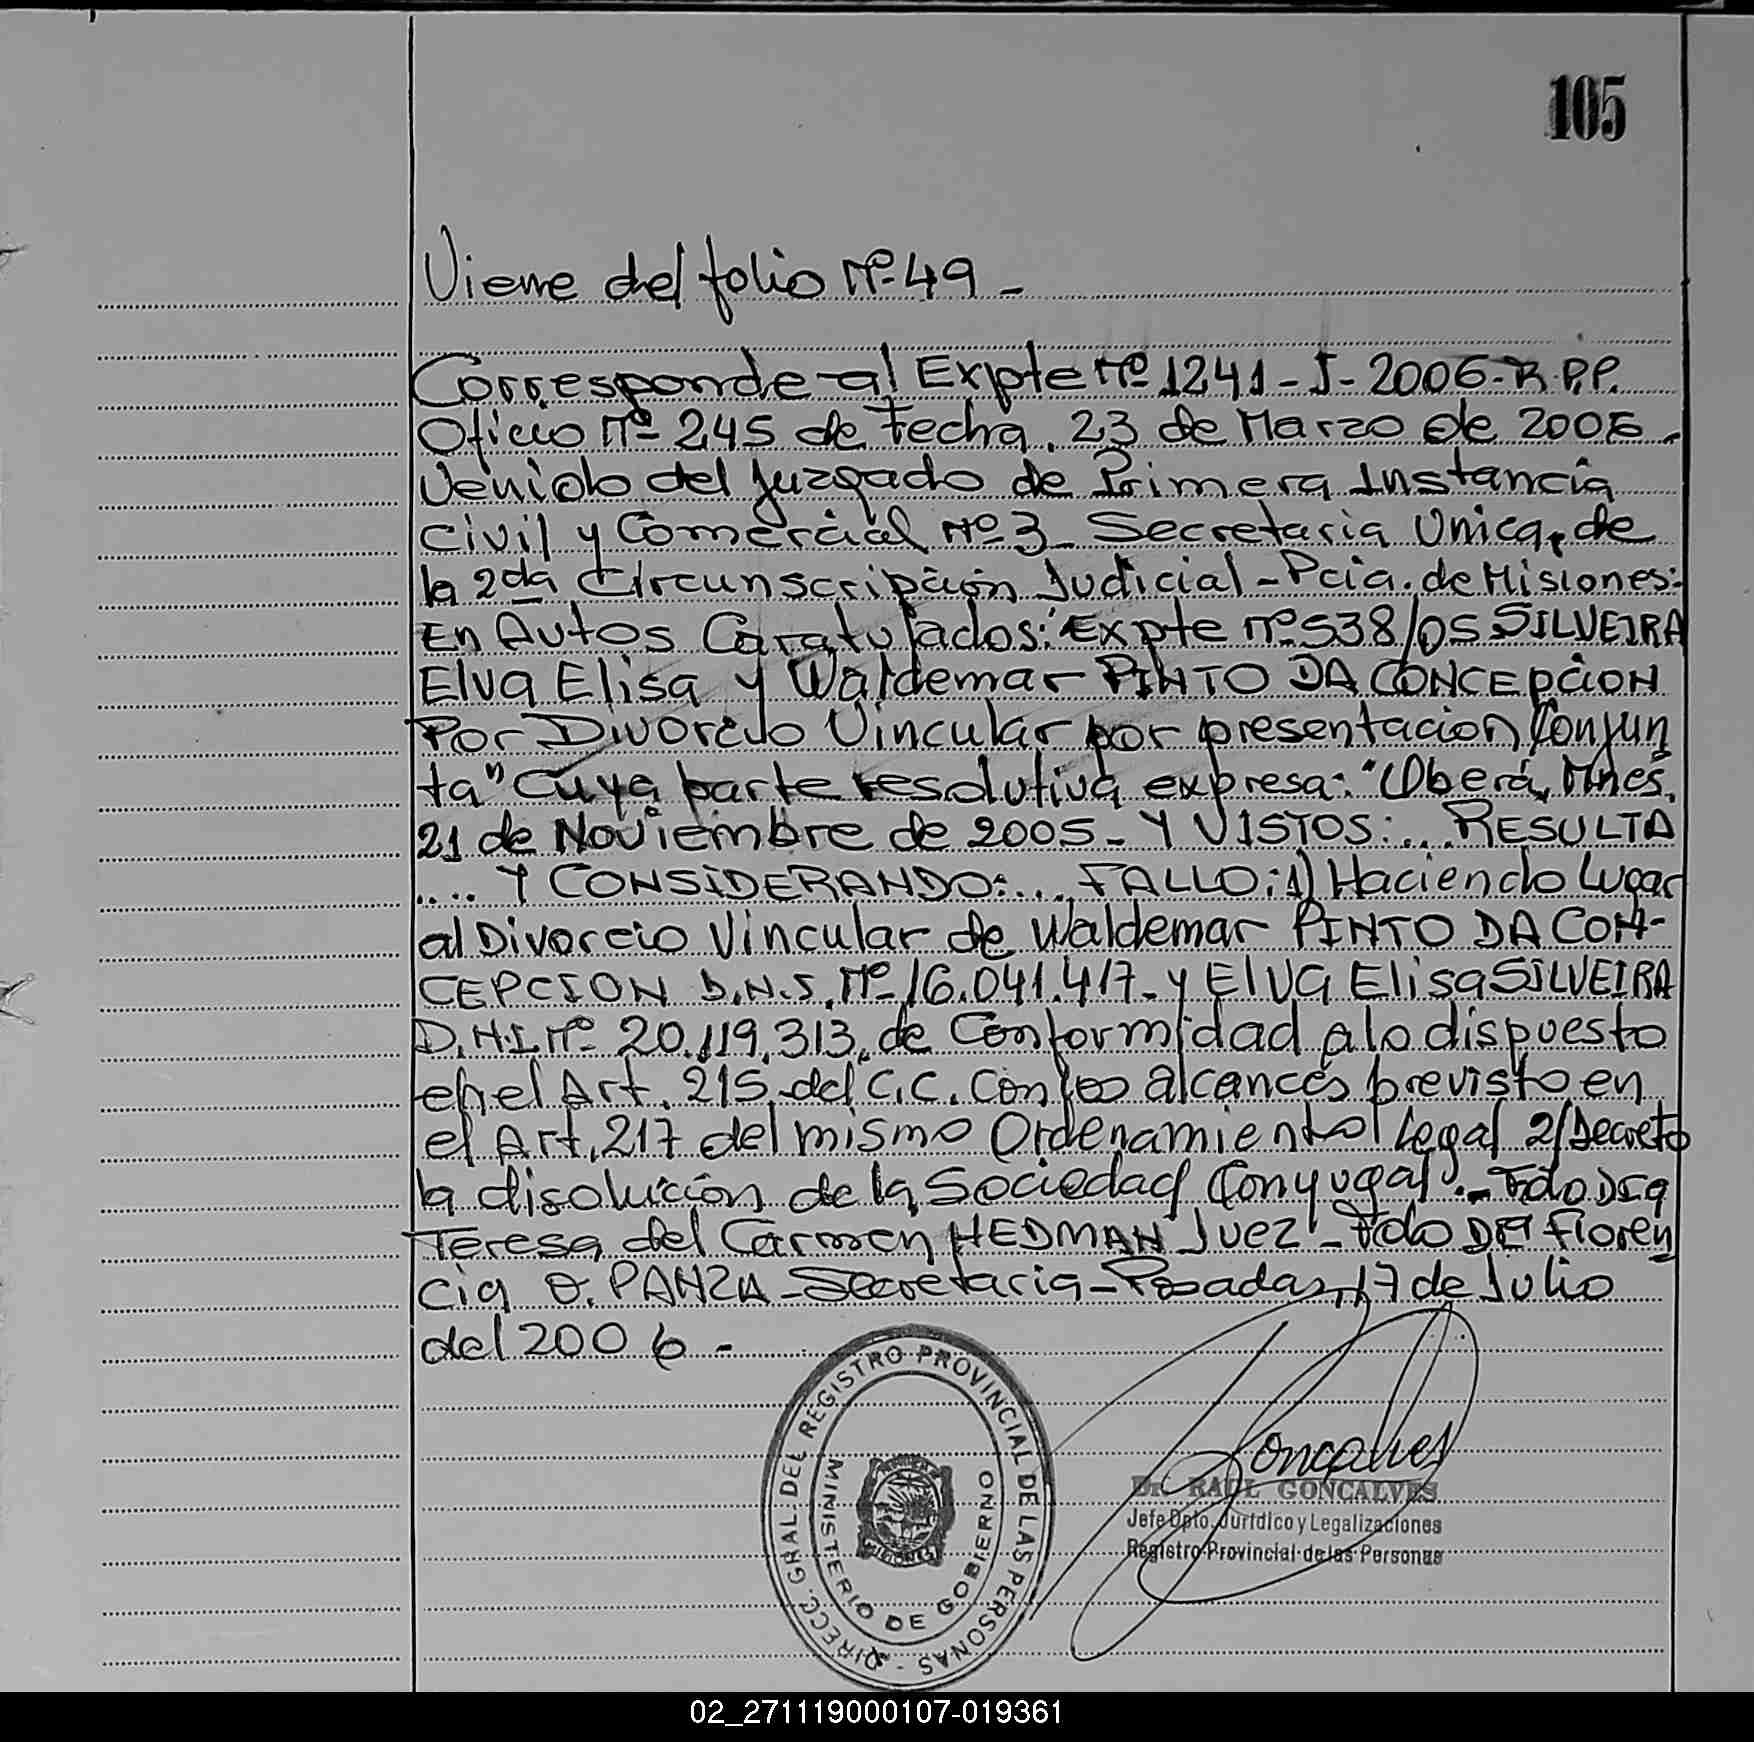 105
Viene del folio Nº 49 -
Corresponde al Expte Nº 1241 - J - 2006 - R.P.P.
Oficio Nº 245 de Fecha, 23 de Marzo de 2006.
Venido del Juzgado de Primera Instancia
Civil y Comercial Nº 3 - Secretaria Unica, de
la 2da Circunscripción Judicial - Pcia. de Misiones:
En Autos Caratulados: "Expte Nº 538/05 SILVEIRA
Elva Elisa y Waldemar PINTO DA CONCEPCION
Por Divorcio Vincular por presentacion Conjun
ta" Cuya parte resolutiva expresa: "Oberá, Mnes,
21 de Noviembre de 2005 - Y VISTOS: ... RESULTA
.... Y CONSIDERANDO: ... FALLO: 1) Haciendo Lugar
al Divorcio Vincular de Waldemar PINTO DA CON-
CEPCION D.N.I. Nº 16.041.417 - y Elva Elisa SILVEIRA
D.N.I Nº 20.119.313, de Conformidad a lo dispuesto
en el Art. 215 del C.C. Con los alcances previsto en
el Art. 217 del mismo Ordenamiento Legal 2/ Decreto
la disolución de la Sociedad Conyugal". - Fdo Dra
Teresa del Carmen HEDMAN Juez - Fdo Dra Floren
cia O. PANZA - Secretaria - Posadas, 17 de Julio
del 2006 -
DIRECC. GRAL. DEL REGISTRO PROVINCIAL DE LAS PERSONAS -
MINISTERIO DE GOBIERNO
MISIONES
Goncalves
Dr. RAUL GONCALVES
Jefe Dpto. Jurídico y Legalizaciones
Registro Provincial de las Personas
02_271119000107-019361